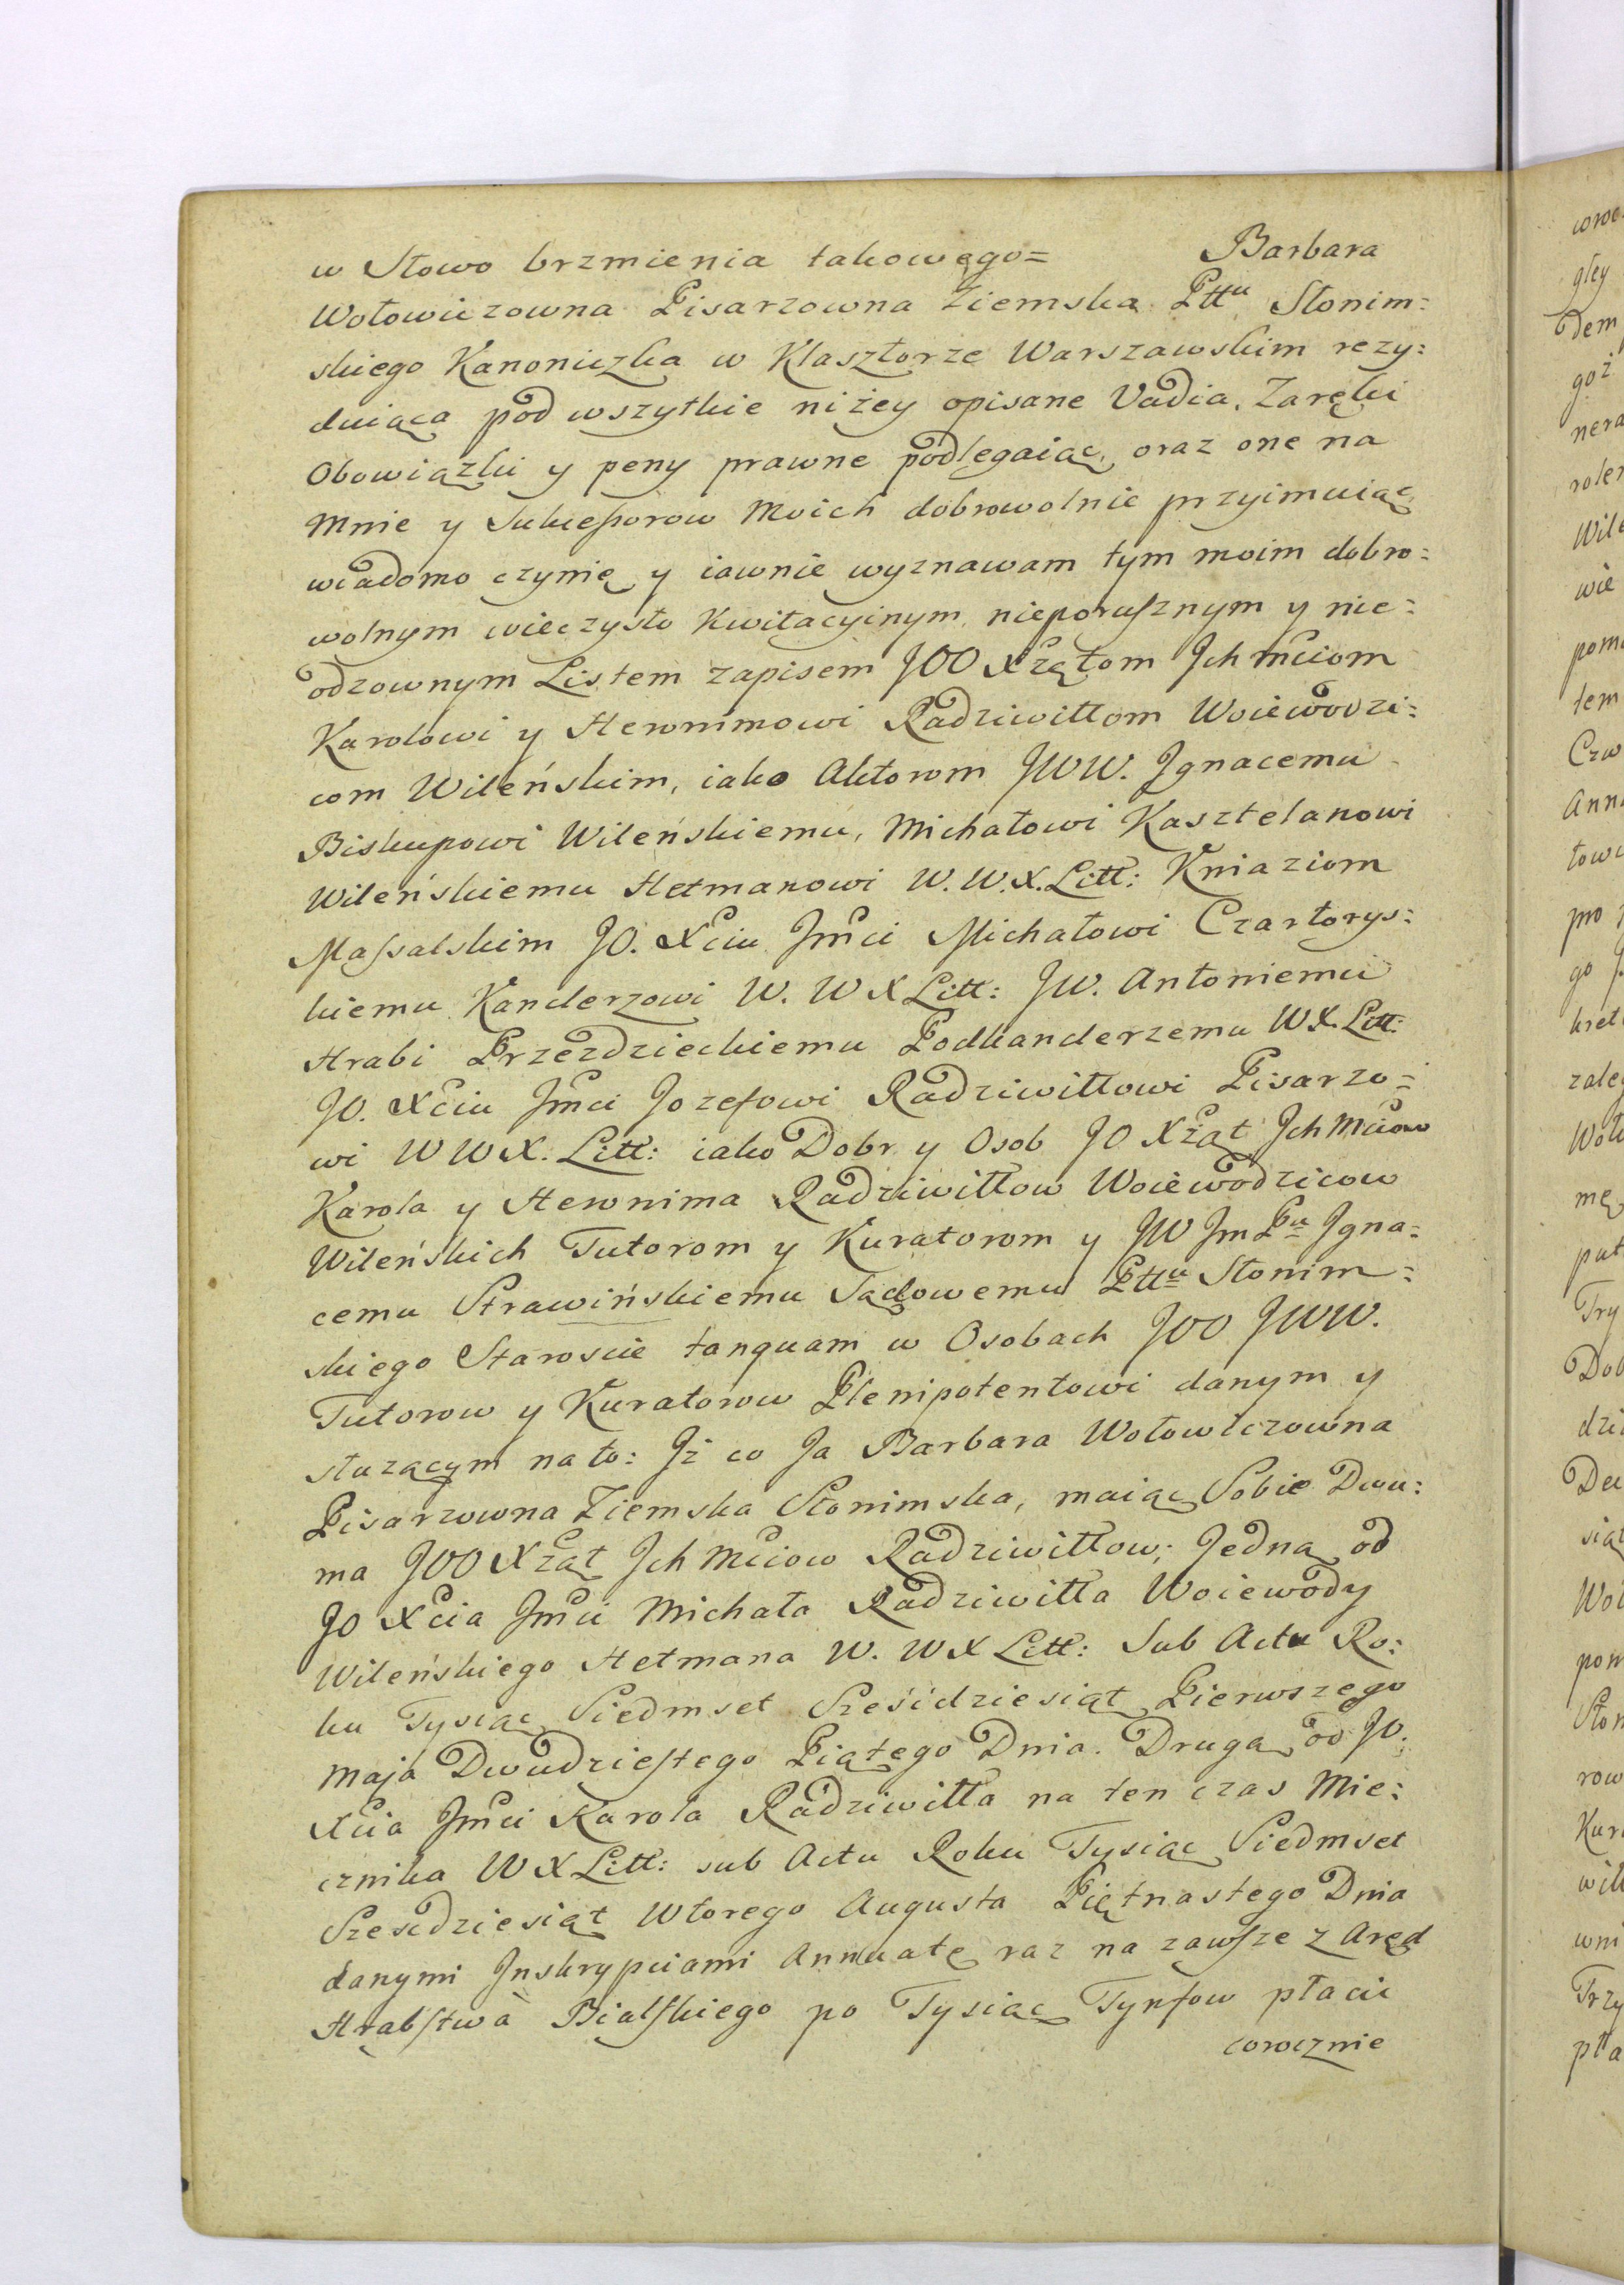 w Słowo brzmienia takowego= Barbara
Wołowiczowna Pisarzowna Ziemska Pttu Słonim:
skiego Kanoniczka w Klasztorze Warszawskim rezy:
duiąca pod wszytkie niżey opisane Vadia, Zaręki
Obowiązki y peny prawne podlegaiąc, oraz one na
Mnie y Sukceſsorow Moich dobrowolnie przyimuiąc
wiadomo czynię y iawnie wyznawam tym moim dobro:
wolnym wieczysto Kwitacyinym, nieporuſznym y nie:
odzownym Listem zapisem JOO Xżętom Jchmciom
Karolowi y Heronimowi Radziwiłłom Woiewodzi:
com Wileńskim, iako Aktorom JWW. Jgnacemu
Biskupowi Wileńskiemu, Michałowi Kasztelanowi
Wileńskiemu Hetmanowi W. W. X. Litt: Kniaziom
Maſsalskim JO. Xciu Jmci Michałowi Czartorys:
kiemu Kanclerzowi W. W X Litt: JW. Antoniemu
Hrabi Przezdzieckiemu Podkanclerzemu WX. Litt:
JO. Xciu Jmci Jozefowi Radziwiłłowi Pisarzo=
wi W W X. Litt: iako Dobr y Osob JO Xżąt Jch Mciow
Karola y Heronima Radziwiłłow Woiewodzicow
Wileńskich Tutorom y Kuratorom y JW Jm Pu Jgna:
cemu Strawińskiemu Sądowemu Pttu Słonim=
skiego Staroscie tanquam w Osobach JOO JWW.
Tutorow y Kuratorow Plenipotentowi danym y
służącym na to: Jż co Ja Barbara Wołowiczowna
Pisarzowna Ziemska Słonimska, maiąc Sobie Dwu:
ma JOO Xżąt Jch Mciow Radziwiłłow; Jedną od
JO Xcia Jmci Michała Radziwiłła Woiewody
Wileńskiego Hetmana W. WX Litt: Sub Actu Ro:
ku Tysiąc Siedmset Sześćdziesiąt Pierwszego
Maja Dwudzieſtego Piątego Dnia. Drugą od JO.
Xcia Jmci Karola Radziwiłła na ten czas Mie:
cznika W X Litt: sub Actu Roku Tysiąc Siedmset
Szescdziesiąt Wtorego Augusta Piętnastego Dnia
danymi Jnskrypciami Annuatę raz na zawſze z Aręd
Hrabſtwa Bialſkiego po Tysiąc Tynfow płacic
corocznie